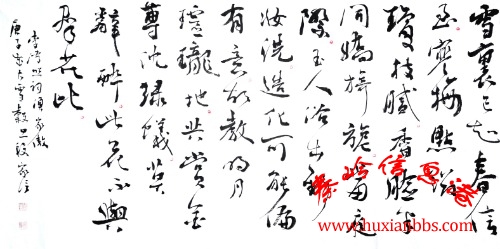 雪裏已知春信
至寒梅點綴
瓊枝膩香臉半
開嬌旖旎當庭
際玉人浴出新
妝洗造化可能偏
有意故教明月
玲瓏地共賞金
尊沈綠蟻莫
辭醉此花不與
群花比
李清照詞漁家傲
www.huxianbbs.com